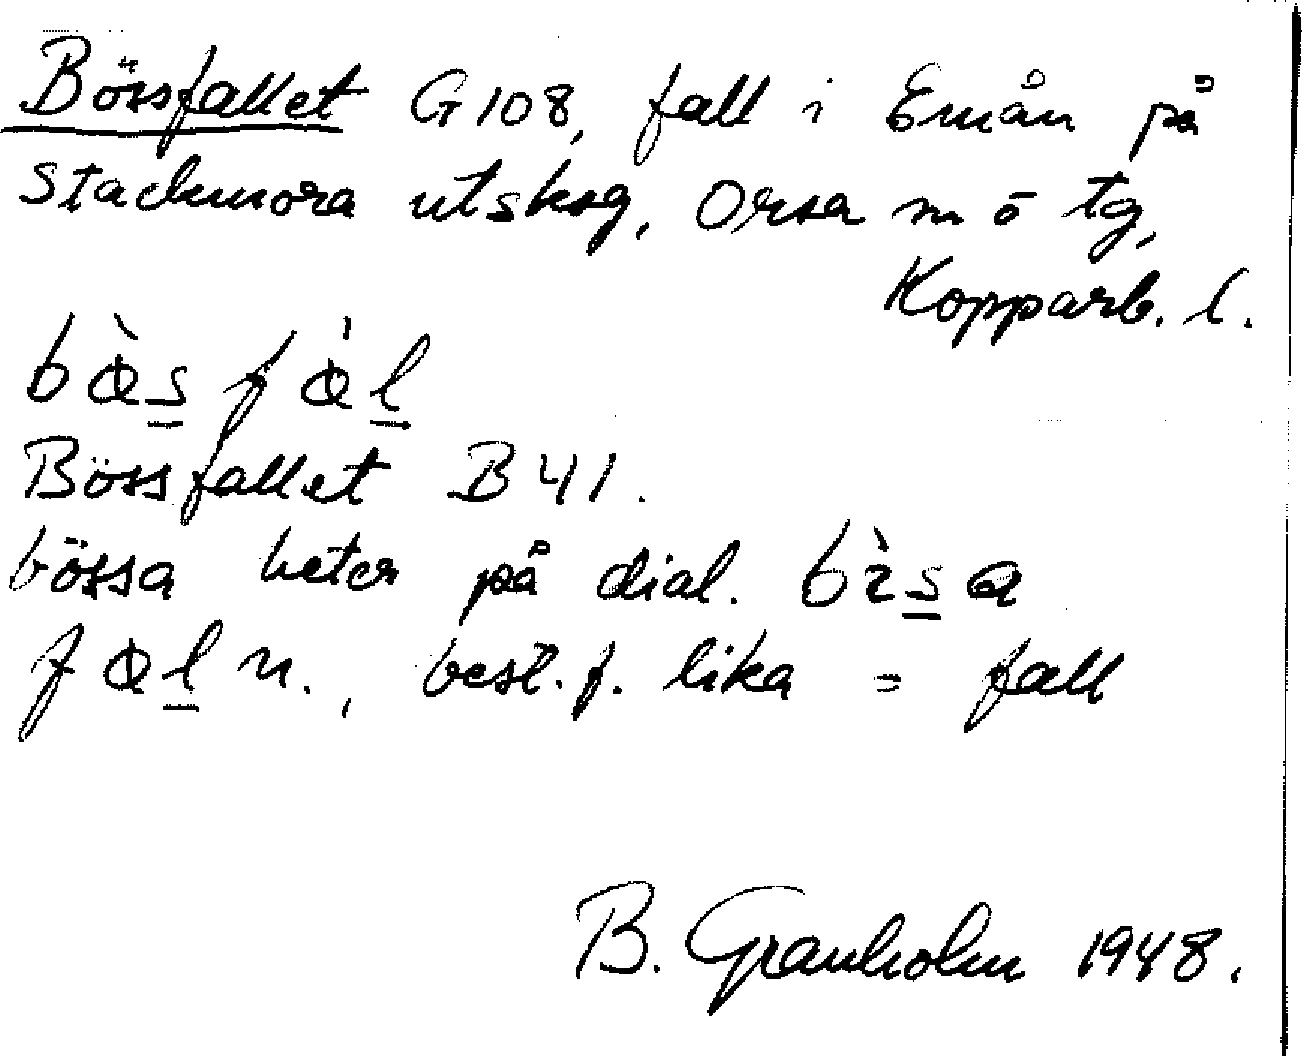 Bössfallet G 108, fall i Emån på
Stackmora utskog, Orsa m o tg,
Kopparb. l.
Bössfallet B 41.
bössa heter på dial.
n., best. f. lika = fall
B. Granholm 1948.